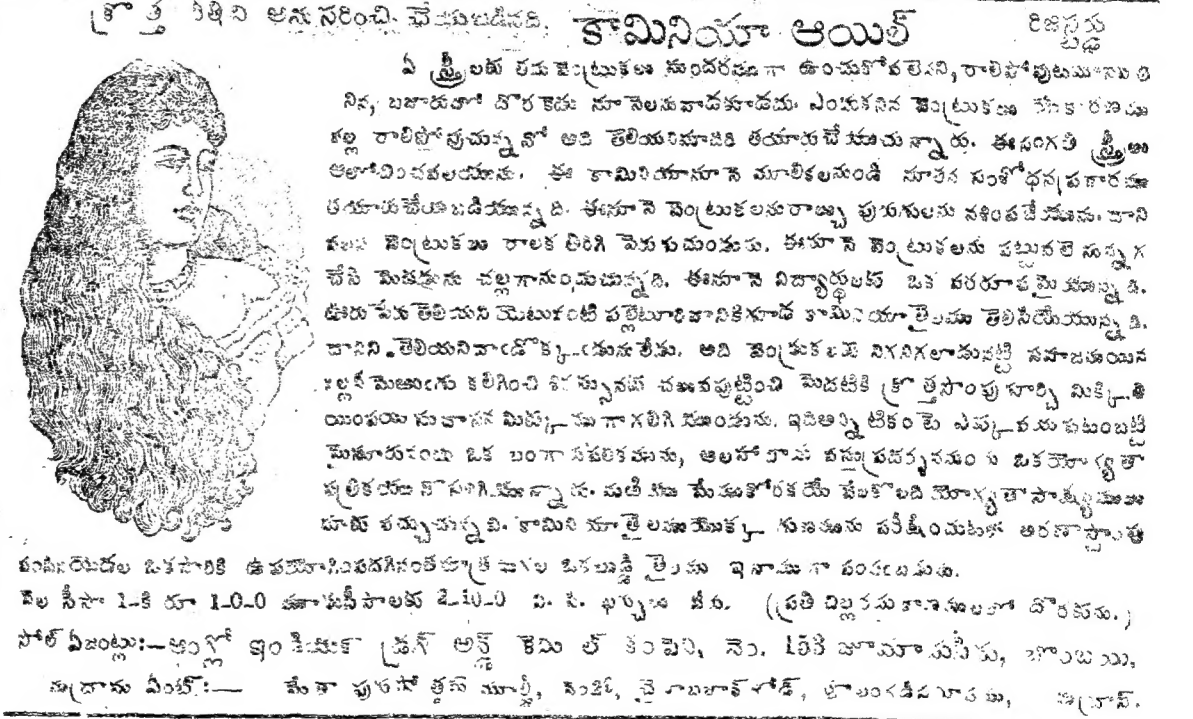 క్రొత్త రీతిని అనుసరించి చేయబడినది. కామినియా ఆయిల్ రిజిస్టర్డు
ఏ స్త్రీలకు తమ వెంట్రుకలు సుందరముగా ఉంచుకోవలెనని, రాలిపోవుట
నిన, బజారులో దొరకెడు నూనెలను వాడకూడదు. ఎందుకనిన వెంట్రుకలు ఏకారణము
వల్ల రాలిపోవుచున్నవో అది తెలియనిమాదిరి తయారుచేయుచున్నారు. ఈసంగతి స్త్రీలు
ఆలోచించవలయును. ఈ కామినియానూనె మూలికలనుండి నూతన సంశోధనప్రకారము
తయారుచేయబడియున్నది. ఈనూనె వెంట్రుకలనురాల్చు పురుగులను నశింపచేయును. దాని
వలన వెంట్రుకలు రాలక తిరిగి పెరుగుచుండును. ఈనూనె వెంట్రుకలను పట్టువలె సున్నగ
చేసి మెదడును చల్లగానుంచుచున్నది. ఈనూనె విద్యార్థులకు ఒక వరరూపమైయున్నది.
ఊరు పేరు తెలియని యెటువంటి పల్లెటూరివానికిగూడ కామినియా తైలము తెలిసియేయున్నది.
దానిని తెలియనివాఁడొక్కఁడును లేడు. అది వెంట్రుకలకు నిగనిగలాడునట్టి సహజమయిన
నల్లని మెఱుఁగు కలిగించి శిరస్సునకు చలువపుట్టించి మెదటికి క్రొత్తసొంపు కూర్చి మిక్కిలి
యింపయిన సువాసన మిక్కుటముగా గలిగియుండును. ఇది అన్నిటికంటె ఎక్కువగుటంబట్టి
మైసూరునందు ఒక బంగారుపతకమును, ఆలహాబాదు వస్తుప్రదర్శనమందు ఒక యోగ్యతా
పత్రికయు నొసగియున్నారు. మఱియు మేముకోరకయే వేలకొలది యోగ్యతాసాక్ష్యములు
మాకు వచ్చుచున్నవి. కామినియాతైలముయొక్క గుణమును పరీక్షించుటకు అరణాస్టాంపు
పంపినయెడల ఒకసారికి ఉపయోగింపదగినంతమాత్రముగల ఒకబుడ్డి తైలము ఇనాముగా పంపబడును.
వెల సీసా 1-కి రూ 1-0-0 మూడుసీసాలకు 2-10-0 వి. పి. ఖర్చులు వేరు. (ప్రతి చిల్లరదుకాణములలో దొరకును.)
సోల్ ఏజంట్లు:—ఆంగ్లో ఇండియన్ డ్రగ్ అన్డ్ కెమికల్ కంపెని, నెం. 153 జూమామసీదు, బొంబాయి,
మద్రాసు ఏజంట్:— పురుషోత్తమ మద్రాస్.